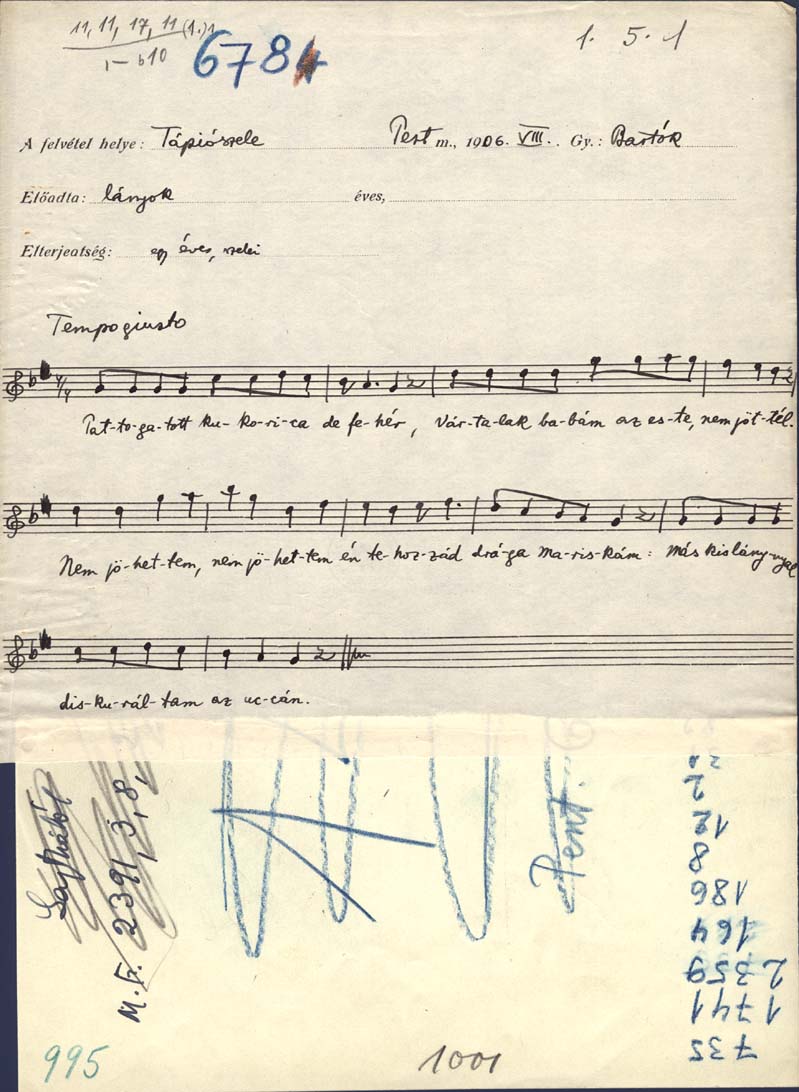 11, 11, 17, 11 (1.)1
1–b10
678
1. 5. 1
A felvétel helye: Tápiószele Pest m., 1906. VIII. Gy.: Bartók
Előadta: lányok éves,
Elterjedtség: egy éves, szelei
Tempo giusto
4/4
Pat-to-ga-tott ku-ko-ri-ca de fe-hér, Vár-ta-lak ba-bám az es-te, nem jöt-tél.
Nem jö-het-tem, nem jö-het-tem én te-hoz-zád drá-ga Ma-ris-kám: más kislány-nyal
dis-ku-rál-tam az uc-cán.
M. F. 2391, 3, 8,
Pent.
2
12
8
186
164
2359
1741
735
995
1001